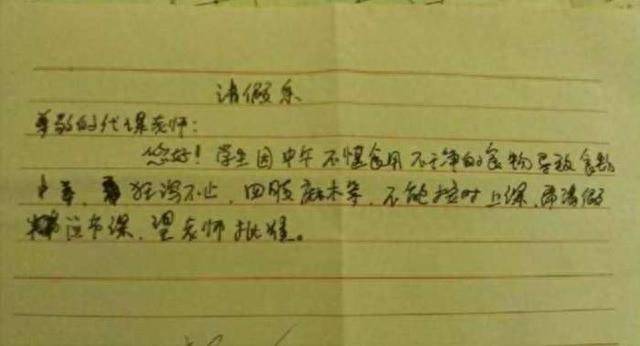 请假条
尊敬的代课老师：
您好！学生因中午不慎食用不干净的食物导致食物
中毒，狂泻不止，四肢麻木等，不能按时上课，请假
这节课，望老师批准。